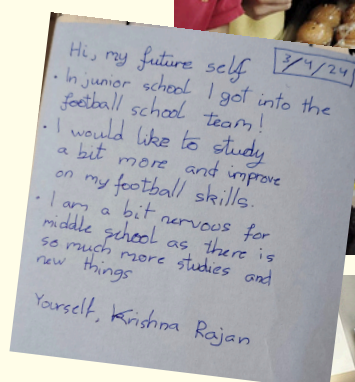 Hi, my future self
3/4/24
• In junior school I got into the
football school team!
• I would like to study
a bit more and improve
on my football skills.
• I am a bit nervous for
middle school as there is
so much more studies and
new things
Yourself, Krishna Rajan